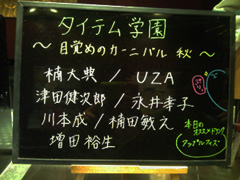 タイテム学園
～目覚めのカーニバル 秋～
楠大典 / UZA
津田健次郎 / 永井幸子
川本成 / 桶田敏之
増田裕生
本日の
オススメドリンク
アップルフィズ